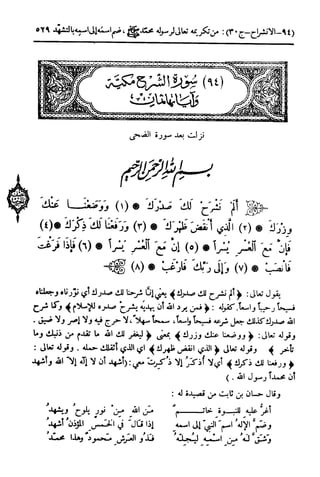 (٩٤- الانشراح - ج ٣٠): من تكريمه تعالى لرسوله محمد ﷺ، ضم اسمه إلى اسمه بالتشهد ٥٢٩
(٩٤) سورة الشرح مكية
وآياتها ثمان
نزلت بعد سورة الضحى
بسم الله الرحمن الرحيم
أَلَمْ نَشْرَحْ لَكَ صَدْرَكَ * (١) وَوَضَعْنَا عَنْكَ
وِزْرَكَ * (٢) الَّذِي أَنْقَضَ ظَهْرَكَ * (٣) وَرَفَعْنَا لَكَ ذِكْرَكَ * (٤)
فَإِنَّ مَعَ الْعُسْرِ يُسْراً * (٥) إِنَّ مَعَ الْعُسْرِ يُسْراً * (٦) فَإِذَا فَرَغْتَ
فَانْصَبْ * (٧) وَإِلَى رَبِّكَ فَارْغَبْ * (٨)
يقول تعالى: ﴿ألم نشرح لك صدرك﴾ يعني إنّا شرحنا لك صدرك أي نوّرناه وجعلناه
فسيحاً رحيباً واسعاً، كقوله: ﴿فمن يرد الله أن يهديه يشرح صدره للإسلام﴾ وكما شرح
الله صدره كذلك جعل شرعه فسيحاً واسعاً، سمحاً سهلاً، لا حرج فيه ولا إصر ولا ضيق.
وقوله تعالى: ﴿ووضعنا عنك وزرك﴾ بمعنى ﴿ليغفر لك الله ما تقدم من ذنبك وما
تأخر﴾ وقوله تعالى ﴿الذي انقض ظهرك﴾ أي الذي أثقلك حمله. وقوله تعالى:
﴿ورفعنا لك ذكرك﴾ أي لا أُذكَرُ إلا ذُكِرتَ معي: (أشهد أن لا إله إلا الله وأشهد
أن محمداً رسول الله.)
وقال حسان بن ثابت من قصيدة له:
أغرّ عليه للنبوة خاتم من الله من نور يلوح ويشهد
وضمّ الإله اسم النبي إلى اسمه إذا قال في الخمس المؤذن أشهد
وشقّ له من اسمه ليجله فذو العرش محمود وهذا محمد